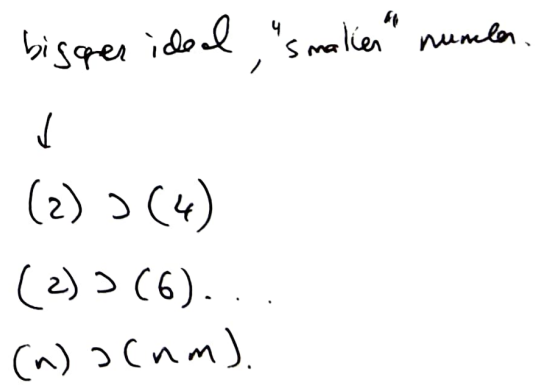 bigger ideal, "smaller" number.
↓
(2) ⊃ (4)
(2) ⊃ (6)...
(n) ⊃ (nm).